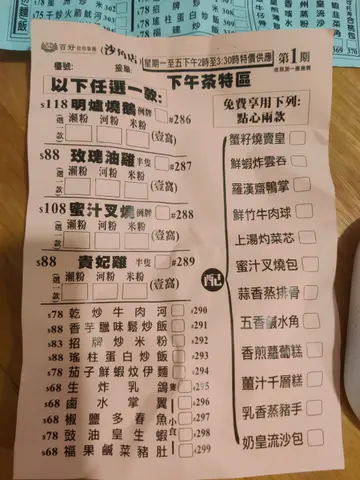 (沙角店)
星期一至五下午2時至3:30時特價供應
第1期
檯號:
以下任選一款:
下午茶特區
$118 明爐燒鵝 例牌 #286
瀨粉 河粉 米粉
(壹窩)
$88 玫瑰油雞 半隻 #287
瀨粉 河粉 米粉
(壹窩)
$108 蜜汁叉燒 例牌 #288
瀨粉 河粉 米粉
(壹窩)
$88 貴妃雞 半隻 #289
瀨粉 河粉 米粉
(壹窩)
$78 乾炒牛肉河 #290
$88 香芋臘味鬆炒飯 #291
$83 招牌炒米粉 #292
$88 瑤柱蛋白炒飯 #293
$78 茄子鮮蝦炆伊麵 #294
$68 生炸乳鴿 隻 #295
$68 鹵水掌翼 #296
$68 椒鹽多春魚 小食 #297
$78 豉油皇生蝦 #298
$68 福果鹹菜豬肚 #299
配
免費享用下列:
點心兩款
蟹籽燒賣皇
鮮蝦炸雲吞
羅漢齋鴨掌
鮮竹牛肉球
上湯灼菜芯
蜜汁叉燒包
蒜香蒸排骨
五香鹹水角
香煎蘿蔔糕
薑汁千層糕
乳香蒸豬手
奶皇流沙包